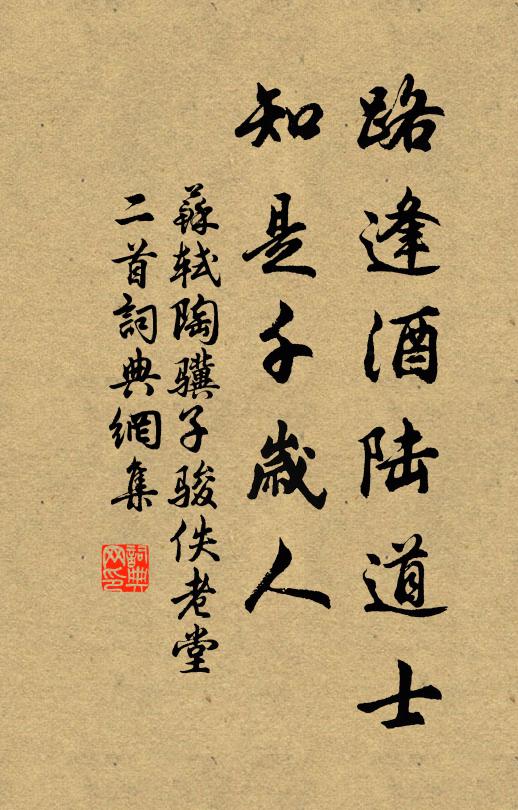 路逢酒陆道士
知是千歲人
蘇軾陶驥子骏佚老堂
二首詞典網集
詞典
网印